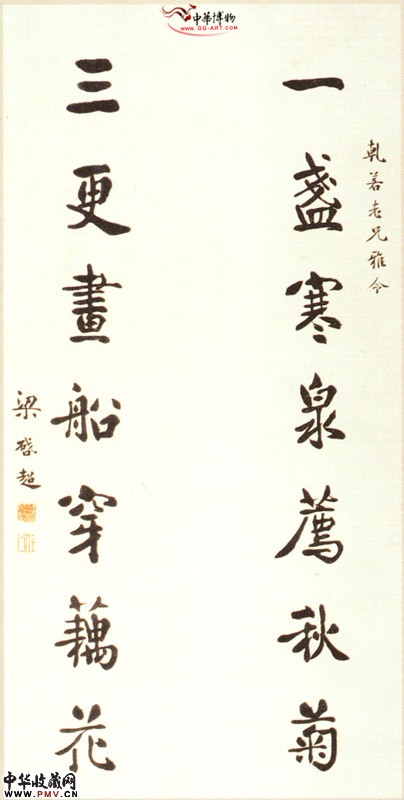 中華博物
WWW.GG-ART.COM
老兄雅令
一盞寒泉薦秋菊
三更畫船穿藕花
梁啓超
中华收藏网
WWW.PMV.CN